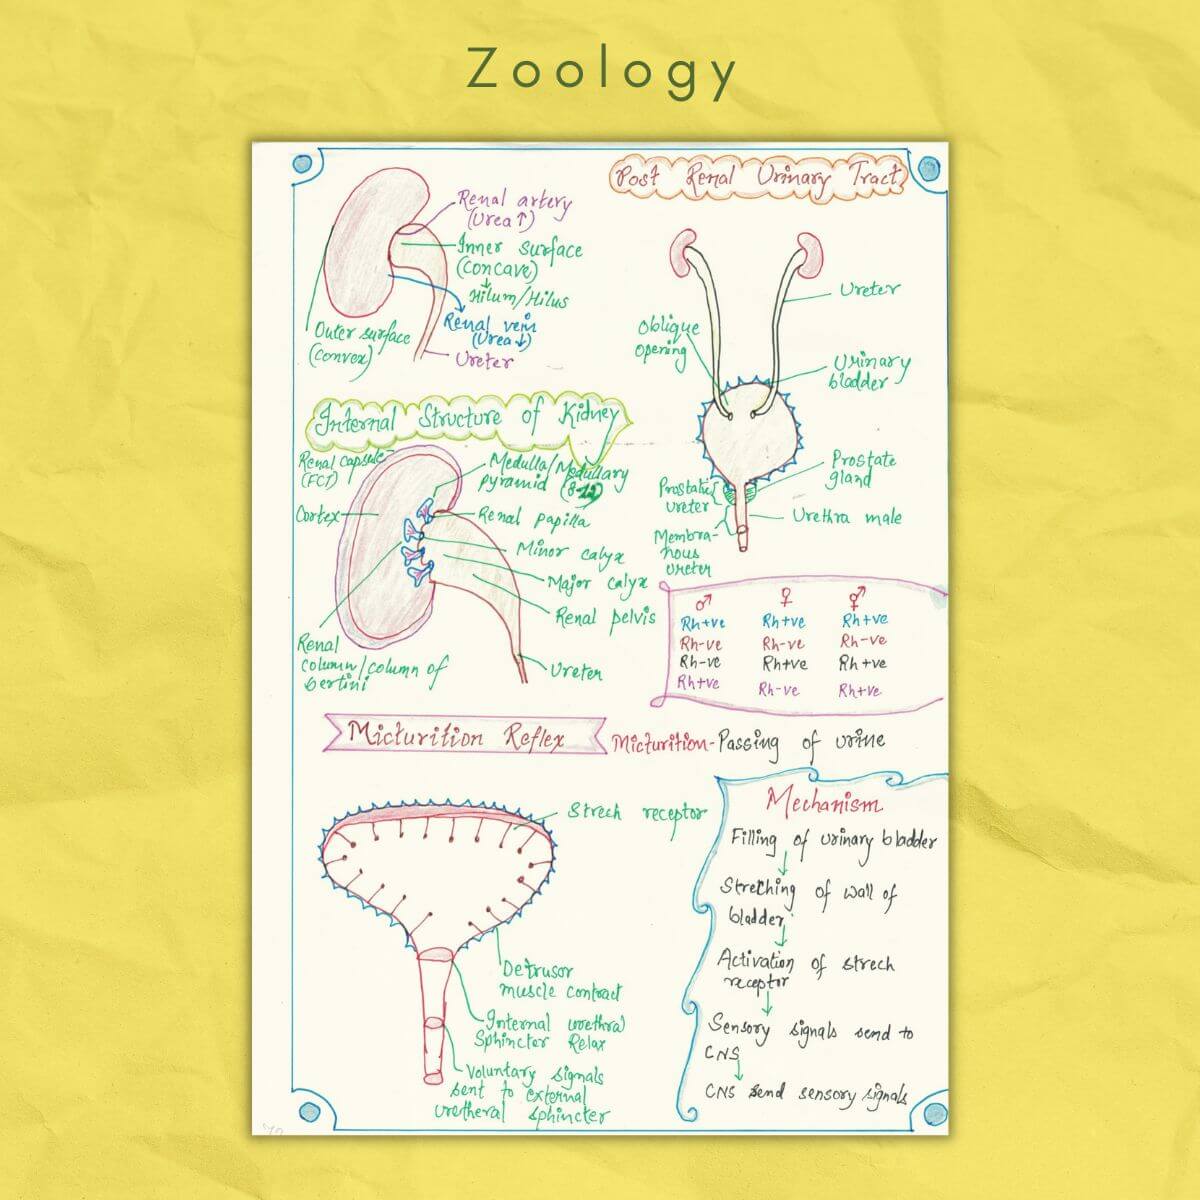 Zoology
Renal artery
(Urea↑)
Inner surface
(concave)
↓
Hilum/Hilus
Renal vein
(Urea↓)
Ureter
Outer surface
(convex)
Post Renal Urinary Tract
Ureter
Oblique
opening
Urinary
bladder
Prostate
gland
Prostatic
ureter
Urethra male
Membra-
nous
ureter
Internal Structure of Kidney
Renal capsule
(FCT)
Medulla/Medullary
pyramid (8-12)
Cortex
Renal papilla
Minor calyx
Major calyx
Renal pelvis
Renal
column/column of
bertini
Ureter
♂ ♀ ⚥
Rh+ve Rh+ve Rh+ve
Rh-ve Rh-ve Rh-ve
Rh-ve Rh+ve Rh+ve
Rh+ve Rh-ve Rh+ve
Micturition Reflex
Micturition-Passing of urine
Strech receptor
Detrusor
muscle contract
Internal urethral
Sphincter Relax
Voluntary signals
sent to external
uretheral sphincter
Mechanism
Filling of urinary bladder
↓
Streching of wall of
bladder
↓
Activation of strech
receptor
↓
Sensory signals send to
CNS
↓
CNS send sensory signals